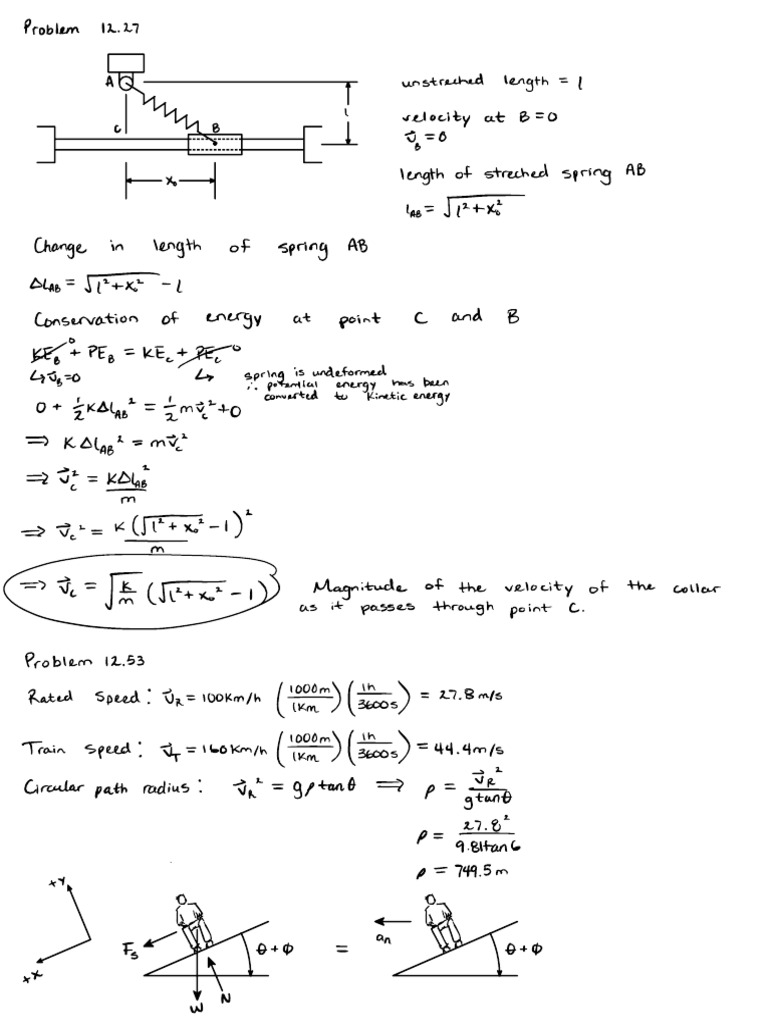 Problem 12.27
A
C
B
l
x₀
unstreched length = l
velocity at B=0
v⃗_B = 0
length of streched spring AB
l_AB = √(l² + x₀²)
Change in length of spring AB
Δl_AB = √(l² + x₀²) - l
Conservation of energy at point C and B
KE_B⁰ + PE_B = KE_C + PE_C⁰
↳ v⃗_B = 0
↳ spring is undeformed
∴ potential energy has been
converted to kinetic energy
0 + 1/2 KΔl_AB² = 1/2 m v⃗_C² + 0
⇒ KΔl_AB² = m v⃗_C²
⇒ v⃗_C² = KΔl_AB² / m
⇒ v⃗_C² = K(√(l² + x₀²) - l)² / m
⇒ v⃗_C = √(K/m) (√(l² + x₀²) - l)
Magnitude of the velocity of the collar
as it passes through point C.
Problem 12.53
Rated Speed: v⃗_R = 100Km/h (1000m/1Km)(1h/3600s) = 27.8 m/s
Train Speed: v⃗_T = 160Km/h (1000m/1Km)(1h/3600s) = 44.4 m/s
Circular path radius: v⃗_R² = gρtanθ ⇒ ρ = v⃗_R² / gtanθ
ρ = 27.8² / 9.81tan6
ρ = 749.5 m
+Y
+X
F_s
W
N
θ + Φ
=
a_n
θ + Φ